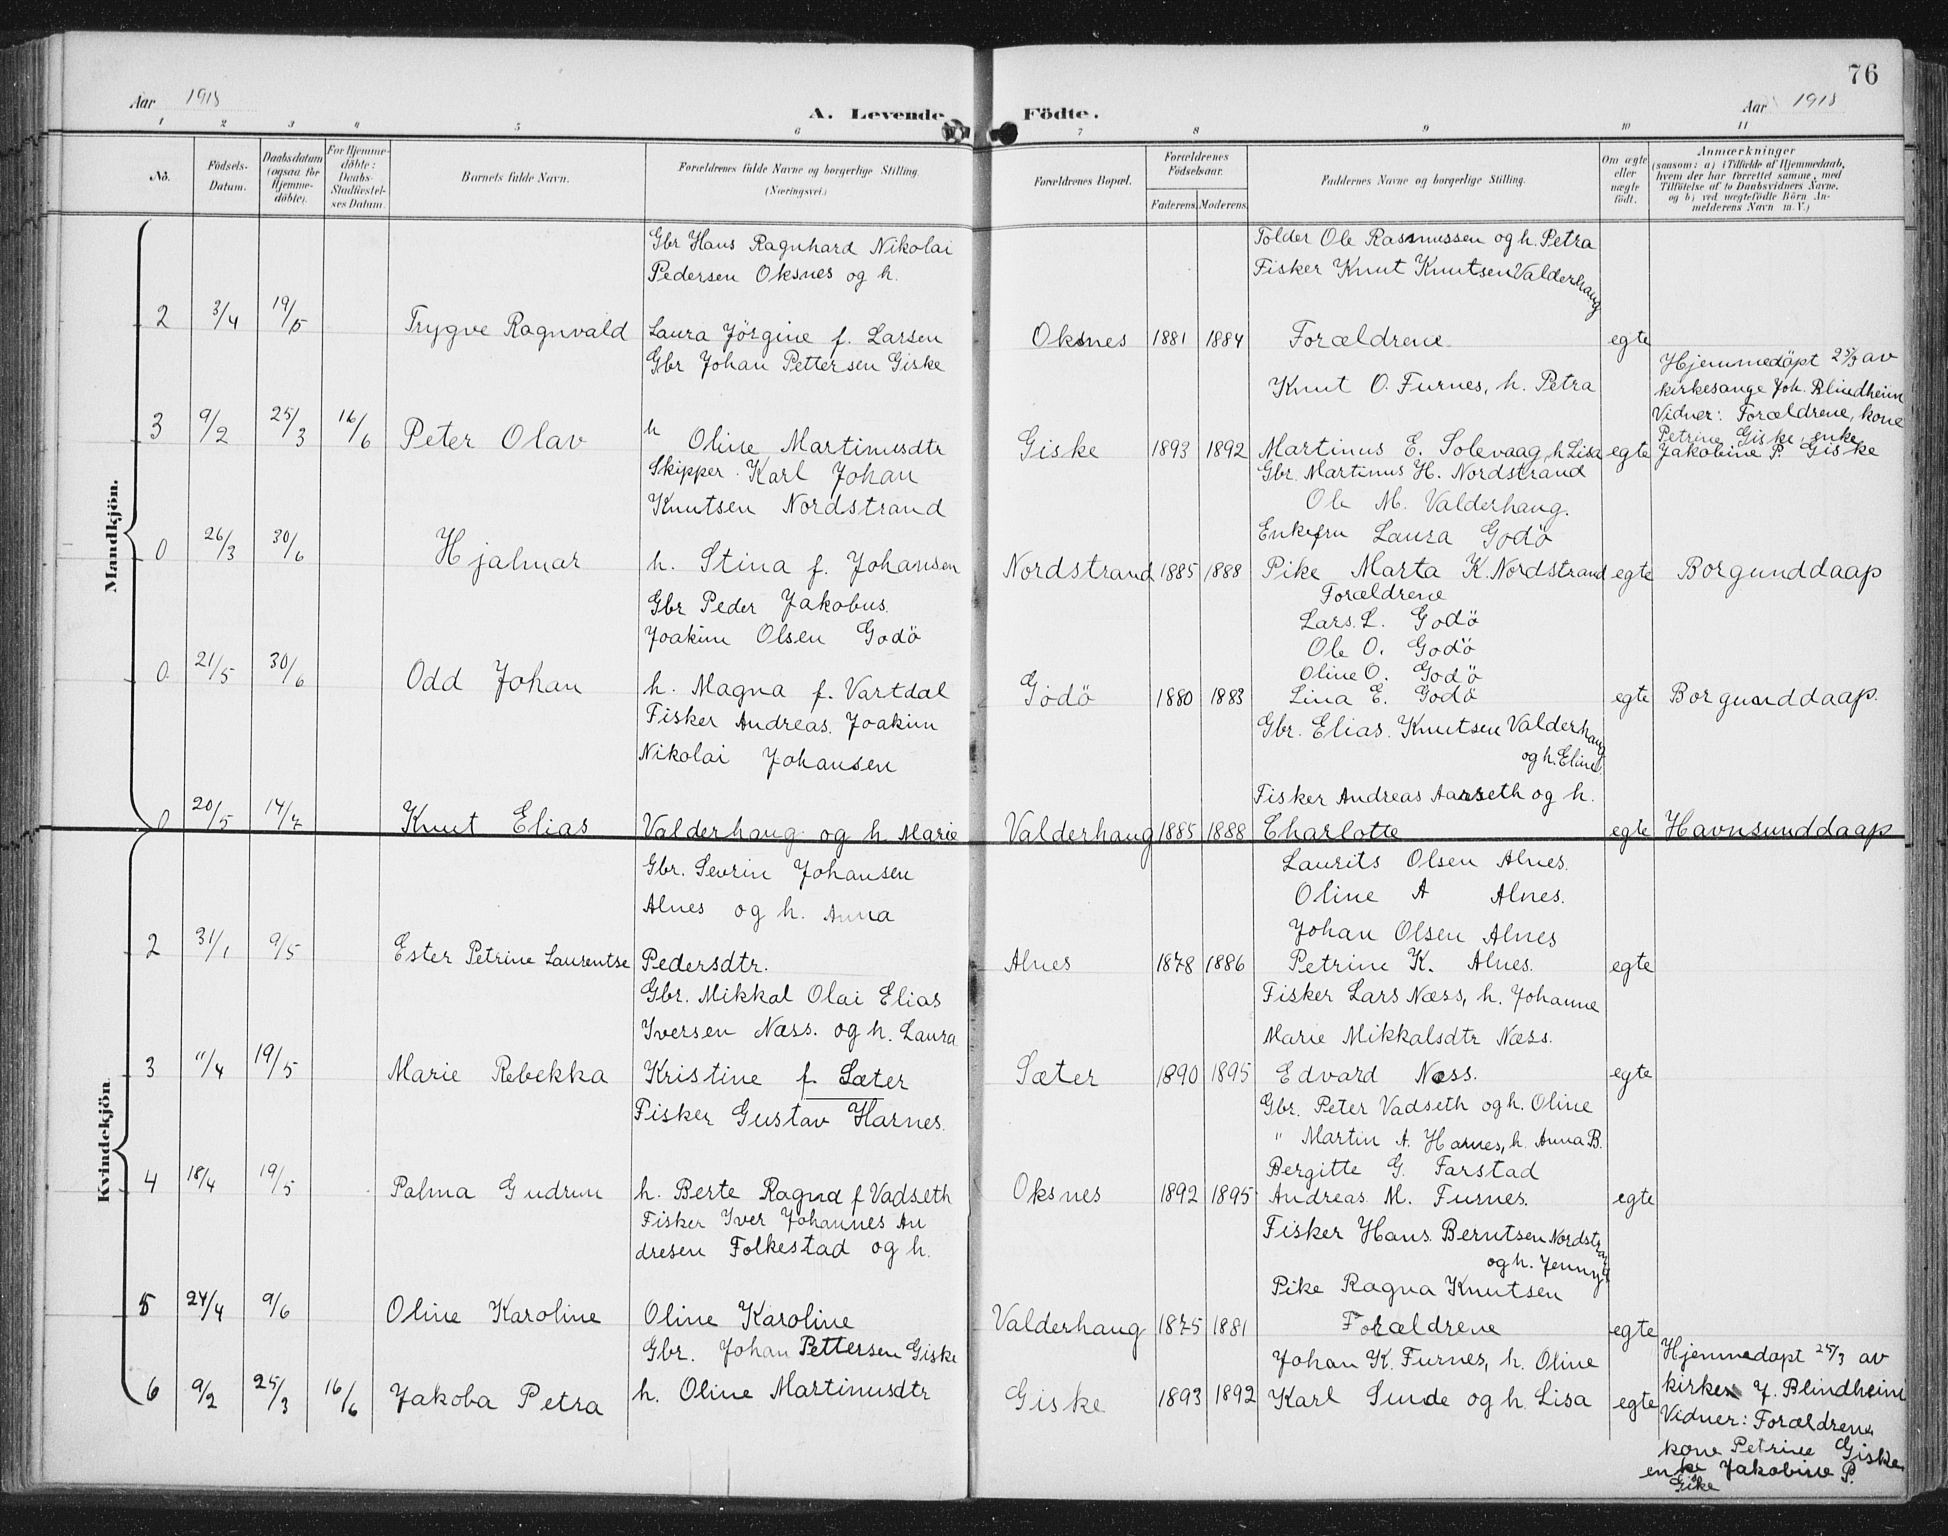 76
Aar 1918
A. Levende Födte.
Aar 1918
1 2 3 4 5 6 7 8 9 10 11
No.
Födsels-
Datum.
Daabsdatum
(ogsaa for
Hjemme-
döbte).
For Hjemme-
döbte:
Daabs-
Stadfæstel-
ses Datum.
Barnets fulde Navn.
Forældrenes fulde Navne og borgerlige Stilling
(Næringsvei.)
Forældrenes Bopæl.
Forældrenes
Födselsaar.
Faderens. Moderens.
Faddernes Navne og borgerlige Stilling.
Om ægte
eller
uægte
födt.
Anmærkninger
(saasom: a) i Tilfælde af Hjemmedaab,
hvem der har forrettet samme, med
Tilföielse af to Daabsvidners Navne,
og b) ved uægtefödte Börn An-
melderens Navn m. V.)
Mandkjön.
Gbr Hans Ragnhard Nikolai
Pedersen Oksnes og h.
Tolder Ole Rasmussen og h. Petra
Fisker Knut Knutsen Valderhaug
2 3/4 19/5 Trygve Ragnvald Laura Jörgine f. Larsen Oksnes 1881 1884 Forældrene egte
Gbr Johan Pettersen Giske
Knut O. Furnes, h. Petra
Hjemmedöpt 25/3 av
kirkesange Joh. Blindheim
Vidner: Forældrene, kone
Petrine Giske, enke
3 9/2 25/3 16/6 Peter Olav h Oline Martinusdtr Giske 1893 1892 Martinus E. Solevaag, h Lisa egte Jakobine P. Giske
Skipper. Karl Johan
Knutsen Nordstrand
Gbr. Martinus H. Nordstrand
Ole M. Valderhaug.
Enkefru Laura Godö
0 26/3 30/6 Hjalmar h. Stina f. Johansen Nordstrand 1885 1888 Pike Marta K. Nordstrand egte Borgunddaap
Gbr Peder Jakobus.
Joakim Olsen Godö
Forældrene
Lars. L. Godö
Ole O. Godö
Oline O. Godö
0 21/5 30/6 Odd Johan h. Magna f. Vartdal Godö 1880 1883 Lina E. Godö egte Borgunddaap.
Fisker Andreas. Joakim
Nikolai Johansen
Gbr. Elias. Knutsen Valderhaug
og h. Eline
Fisker Andreas Aarseth og h.
0 20/5 14/7 Knut Elias Valderhaug og h. Marie Valderhaug 1885 1888 Charlotte egte Havnsunddaap
Kvindekjön
Gbr. Sevrin Johansen
Alnes og h. Anna
Laurits Olsen Alnes.
Oline A Alnes.
Johan Olsen Alnes
2 31/1 9/5 Ester Petrine Laurentse Pedersdtr. Alnes 1878 1886 Petrine K. Alnes. egte
Gbr. Mikkal Olai Elias
Iversen Næss. og h. Laura
Fisker Lars Næss, h. Johanne
Marie Mikkalsdtr Næss.
3 11/4 19/5 Marie Rebekka Kristine f. Sæter Sæter 1890 1895 Edvard Næss. egte
Fisker Gustav Harnes.
Gbr. Peter Vadseth og h. Oline
" Martin A. Harnes, h. Anna B.
Bergitte G. Farstad
4 18/4 19/5 Palma Gudrun h. Berte Ragna f Vadseth Oksnes 1892 1895 Andreas M. Furnes. egte
Fisker Iver Johannes An
dresen Folkestad og h.
Fisker Hans Berntsen Nordstrand
og h. Jenny
Pike Ragna Knutsen
5 24/4 9/6 Oline Karoline Oline Karoline Valderhaug 1875 1881 Forældrene egte
Gbr. Johan Pettersen Giske
Johan K. Furnes, h. Oline
Hjemmedöpt 25/3 av
6 9/2 25/3 16/6 Jakoba Petra h. Oline Martinusdtr Giske 1893 1892 Karl Sunde og h. Lisa egte kirkes J. Blindheim
Vidner: Forældrene
kone Petrine Giske
enke Jakobine P.
Giske